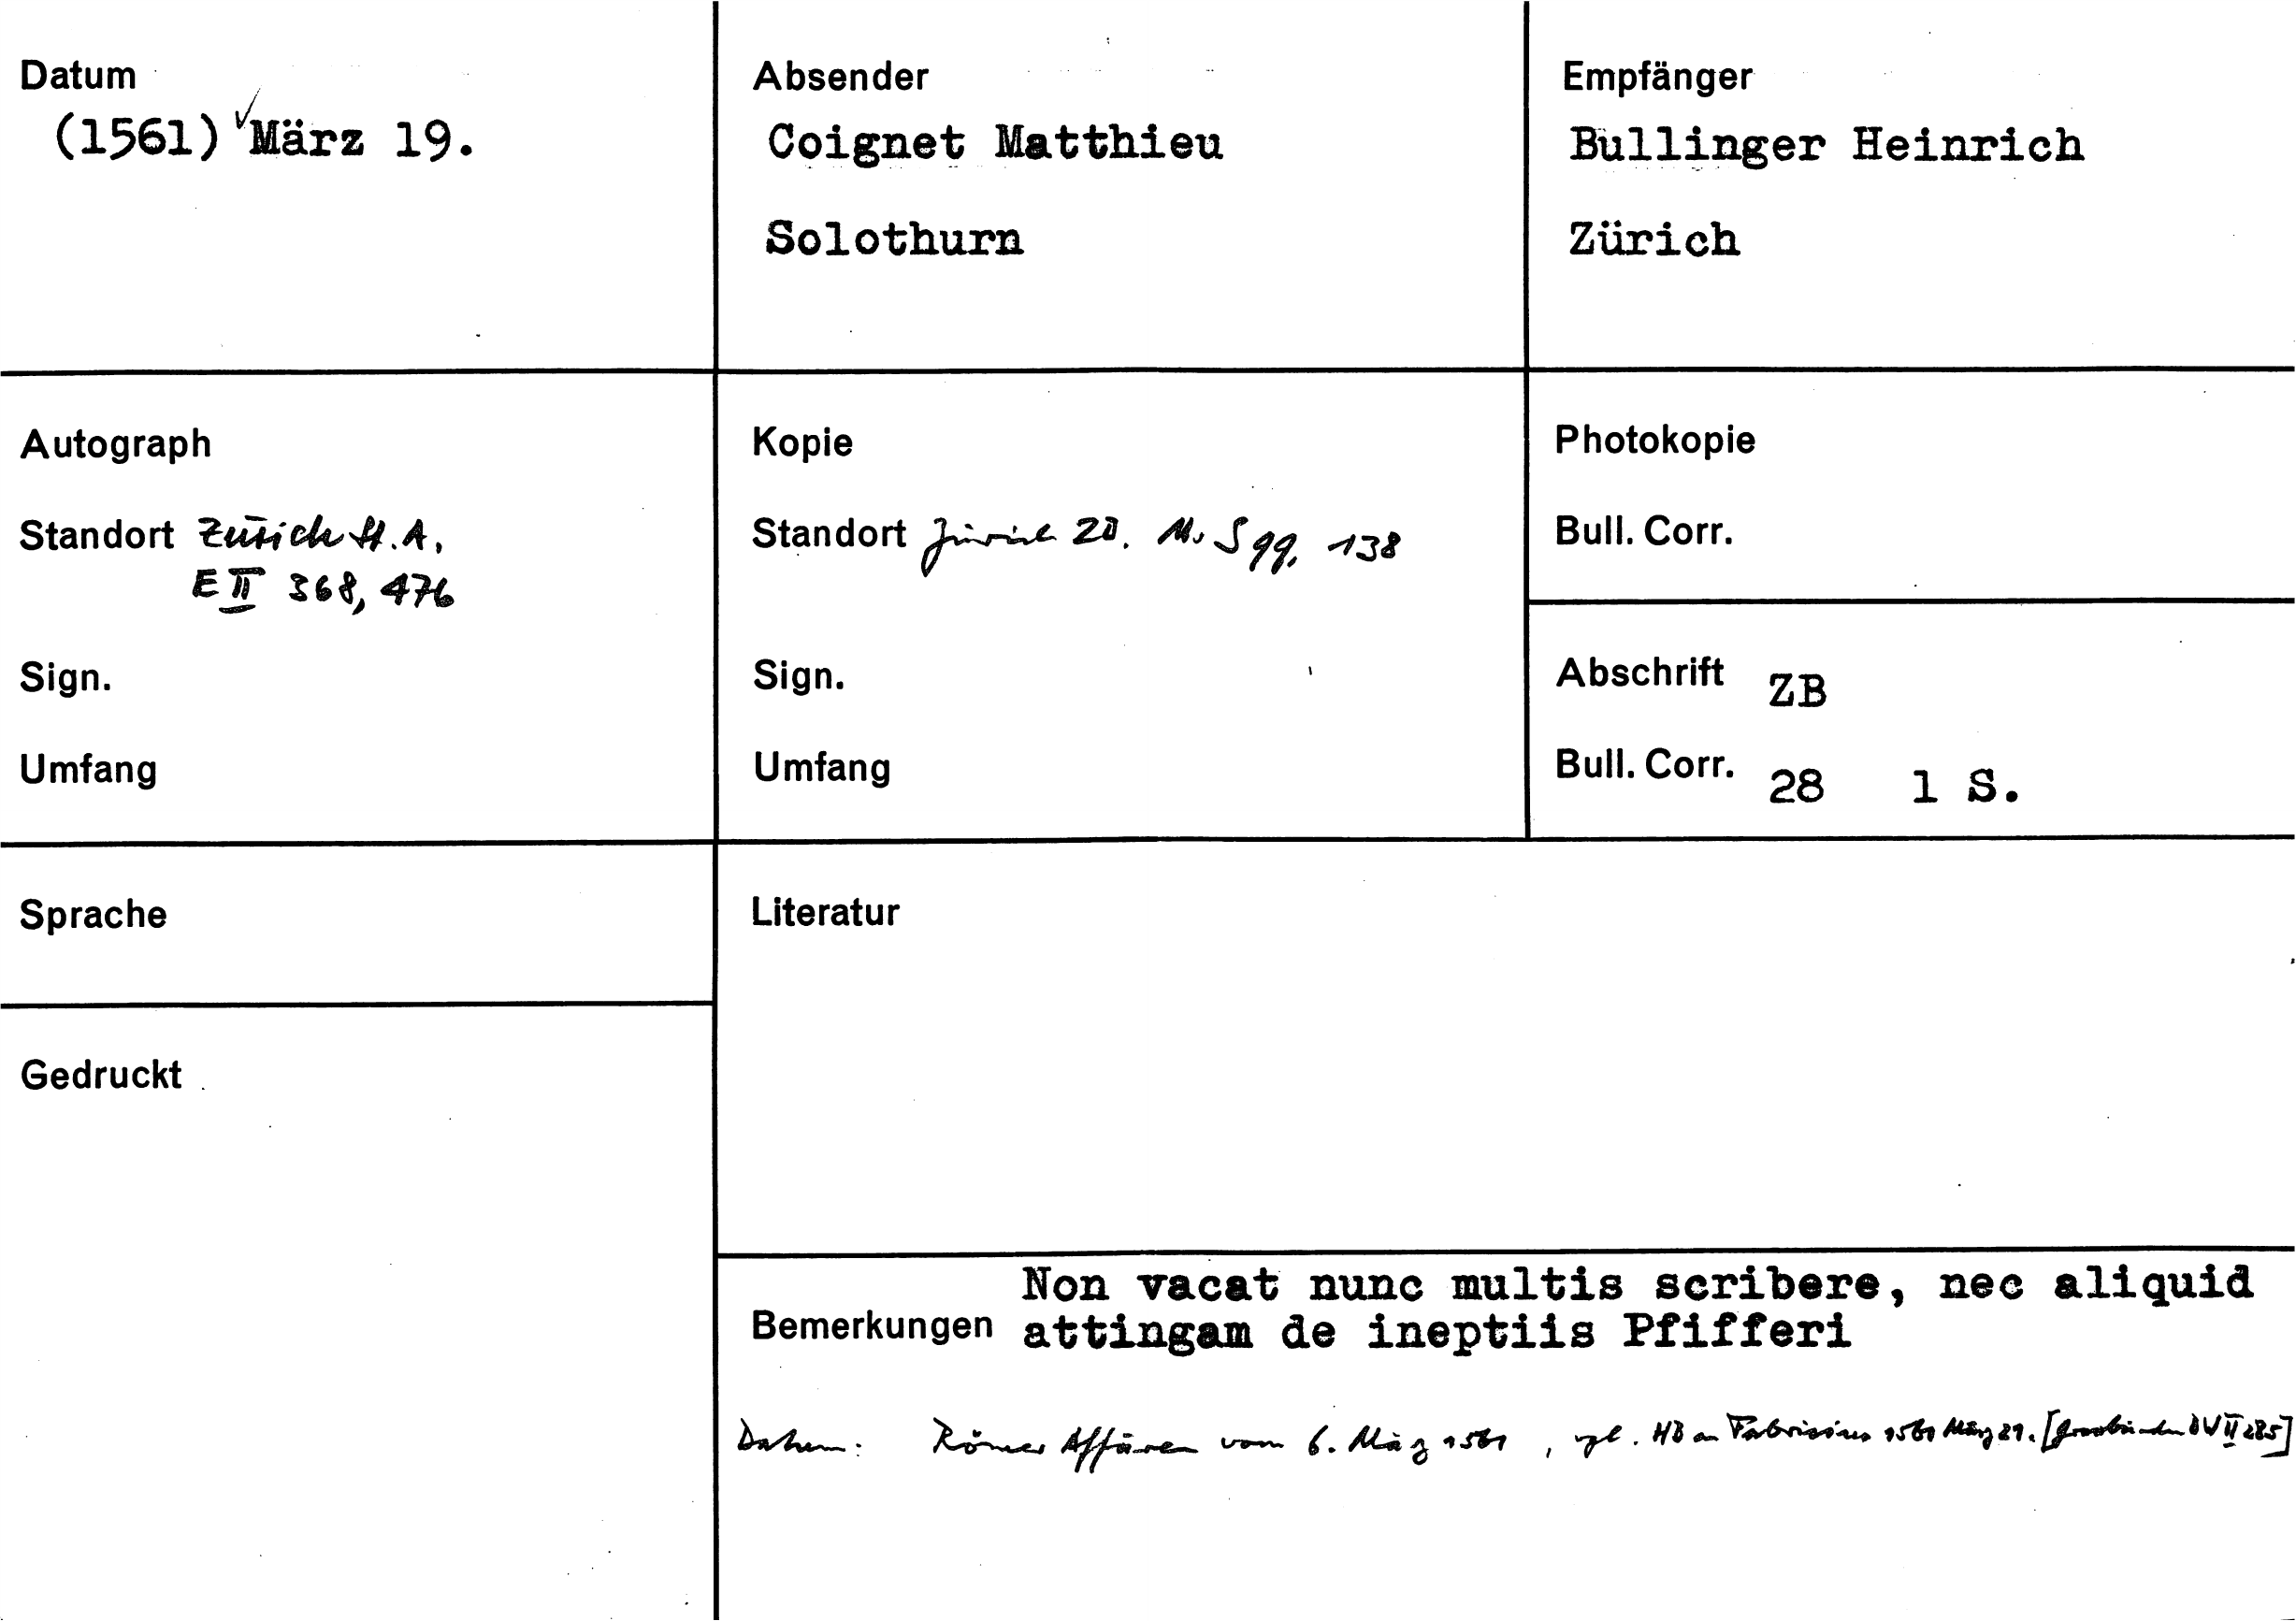 Datum
(1561) März 19.
Absender
Coignet Matthieu
Solothurn
Empfänger
Bullinger Heinrich
Zürich
Autograph
Standort Zürich St.A,
E II 368, 476
Sign.
Umfang
Kopie
Standort Zürich ZB. Ms S 99, 138
Sign.
Umfang
Photokopie
Bull. Corr.
Abschrift ZB
Bull. Corr. 28 1 S.
Sprache
Literatur
Gedruckt
Non vacat nunc multis scribere, nec aliquid
Bemerkungen attingam de ineptiis Pfifferi
Datum: Römer Affären vom 6. März 1561, vgl. HB an Fabricius 1561 März 21. [Graubünden BW II 285]